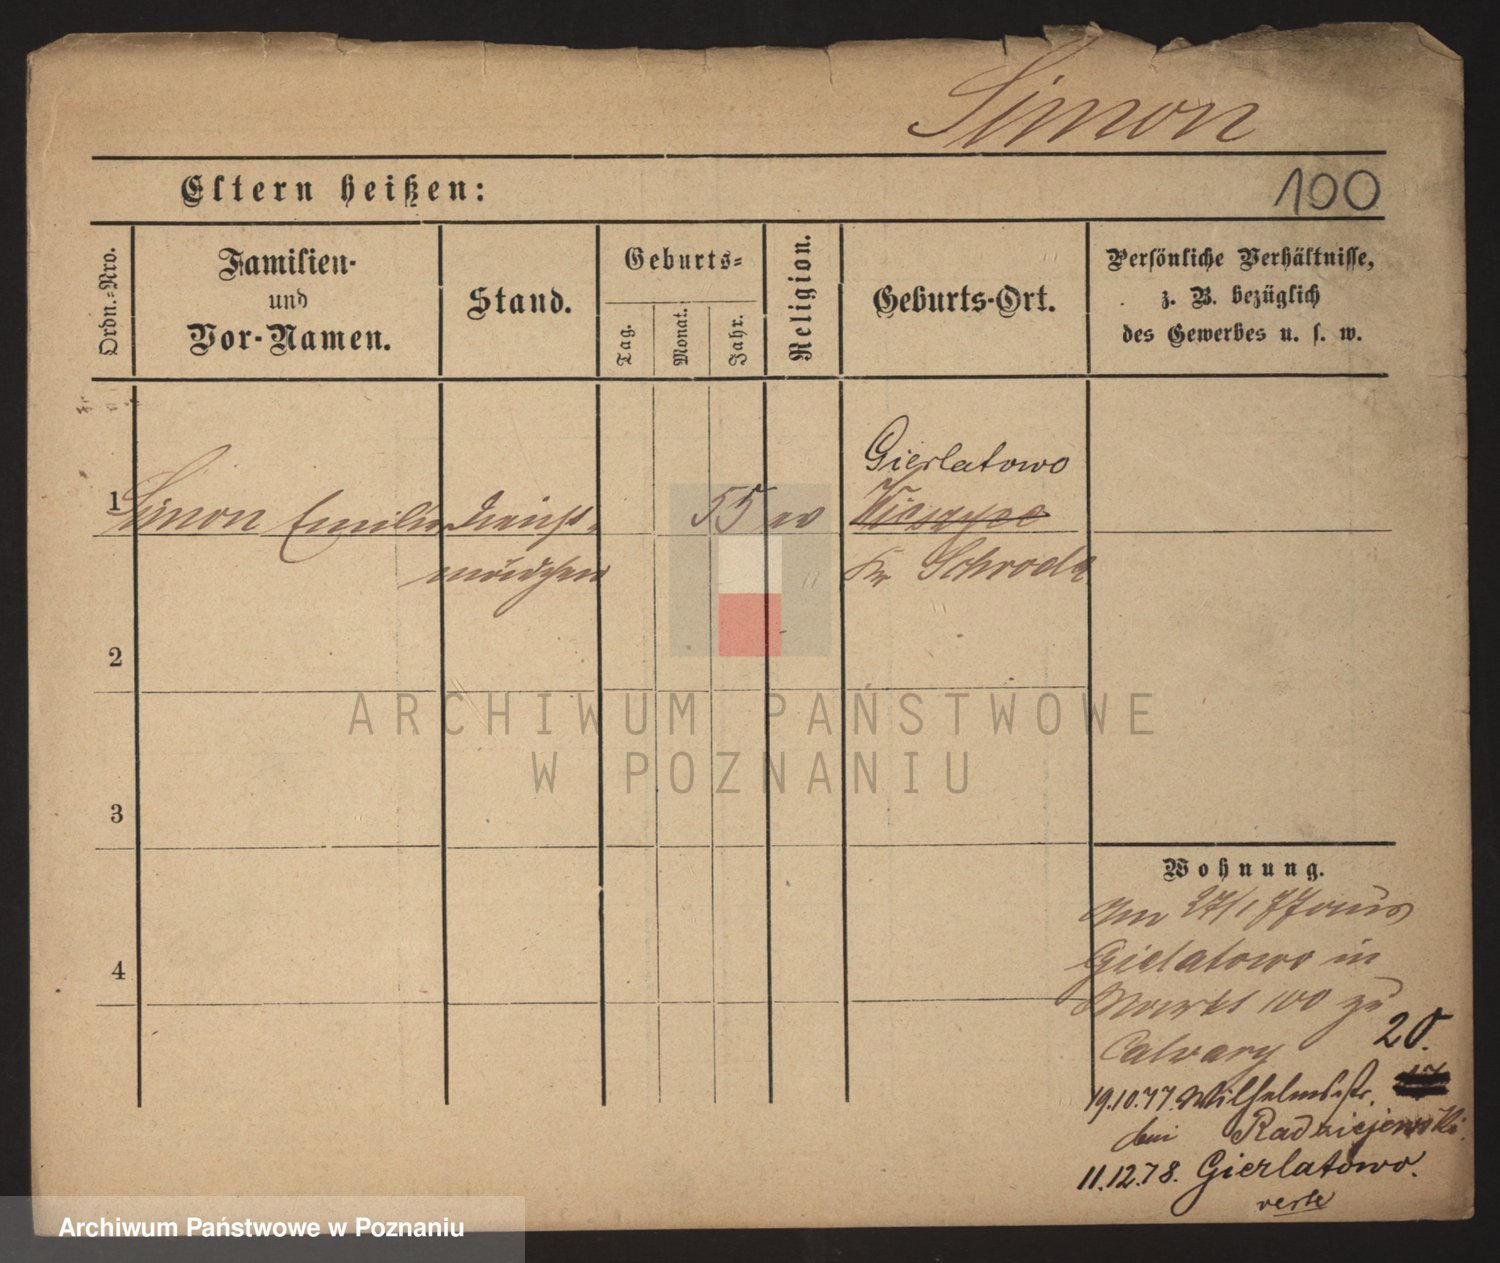 Simon
Eltern heißen:
100
Ordn.-Nro.
Familien-
und
Vor-Namen.
Stand.
Geburts-
Tag.
Monat.
Jahr.
Religion.
Geburts-Ort.
Persönliche Verhältnisse,
z. B. bezüglich
des Gewerbes u. s. w.
Gierlatowo
1 Simon Emilie Dienst- 55 ev
mädchen Kr Schroda
2
3
4
Wohnung.
Am 27/1 77 aus
Gielatowo in
Markt 100 zu
Calvary
20.
19.10.77. Wilhelmsstr.
bei Radziejewski.
11.12.78. Gierlatowo.
ARCHIWUM PAŃSTWOWE
W POZNANIU
Archiwum Państwowe w Poznaniu